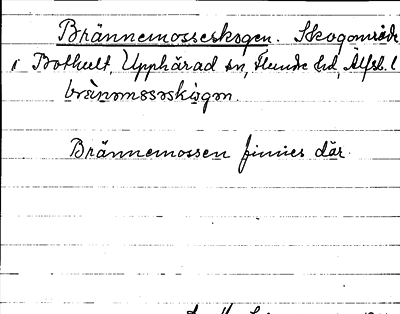 Brännemosseskogen. Skogområde
i Bothult, Upphärad sn, Flundre hd, Älfsb. l
brànǝmɔsǝskògǝn.
Brännemossen finnes där.